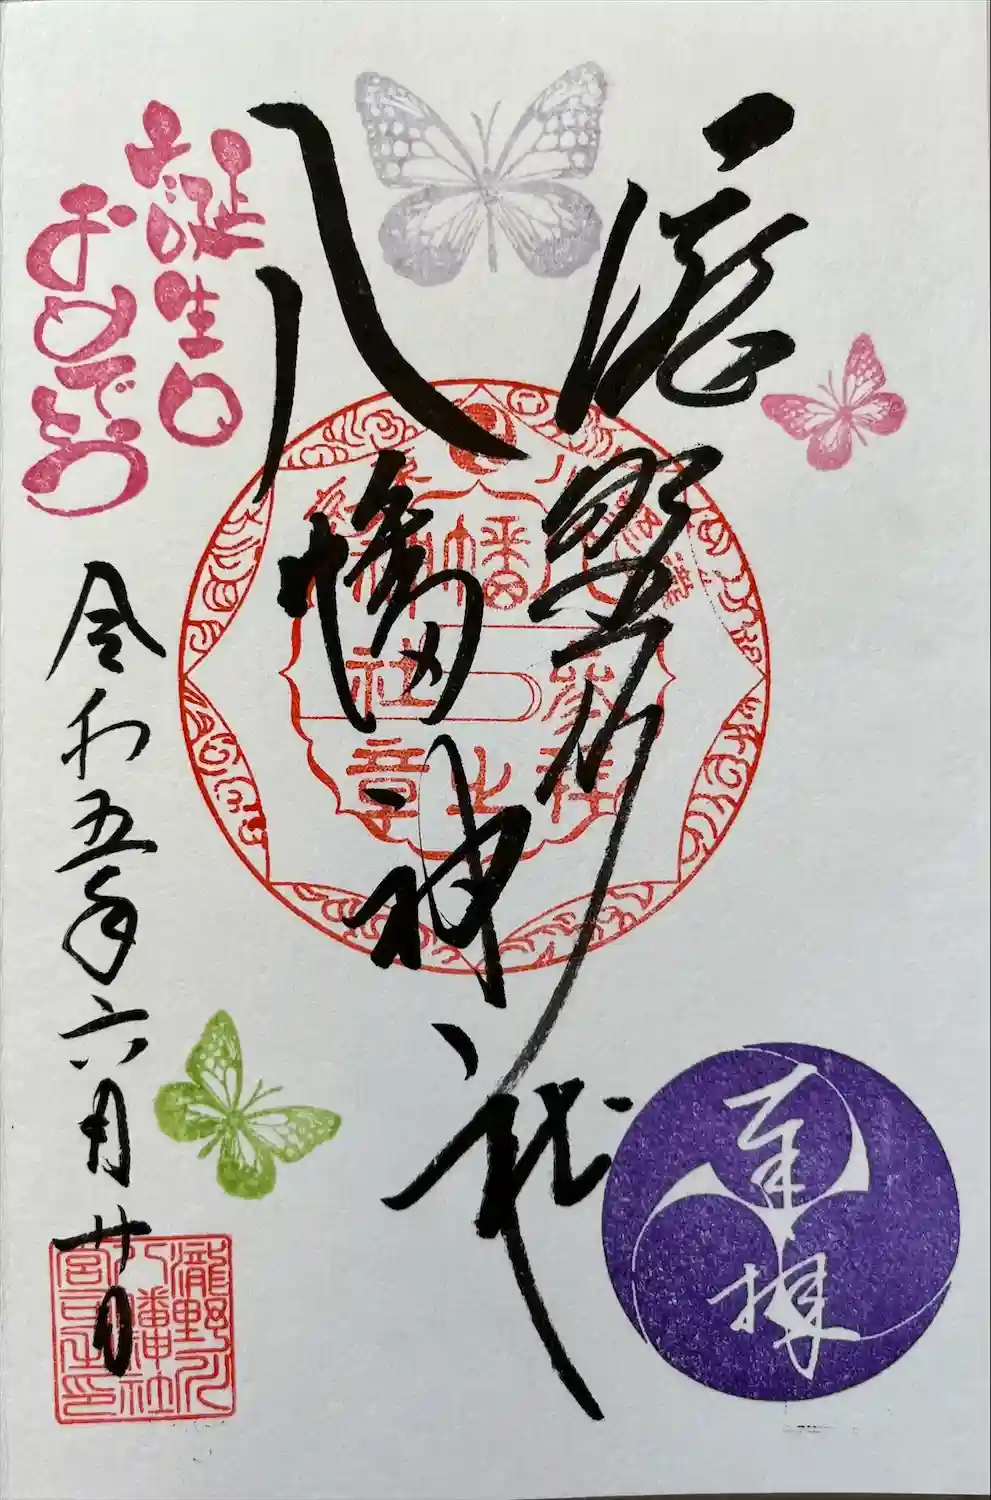 滝野川
八幡神社
奉拝
お誕生日
おめでとう
令和五年六月廿日
瀧野川
八幡神社
参拝
之章
瀧野川
八幡神社
宮司之印